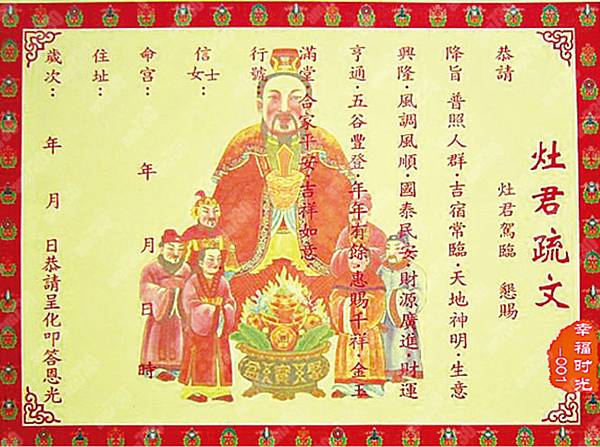 灶君疏文
恭請　灶君駕臨　懇賜
降旨　普照人群·吉宿常臨·天地神明·生意
興隆·風調風順·國泰民安·財源廣進·財運
亨通·五谷豐登·年年有餘·惠賜千祥·金玉
滿堂　合家平安·吉祥如意
行號
信士女士：
命宮：　年　月　日　時
住址：
歲次：　年　月　日恭請呈化叩答恩光
幸福时光
-001